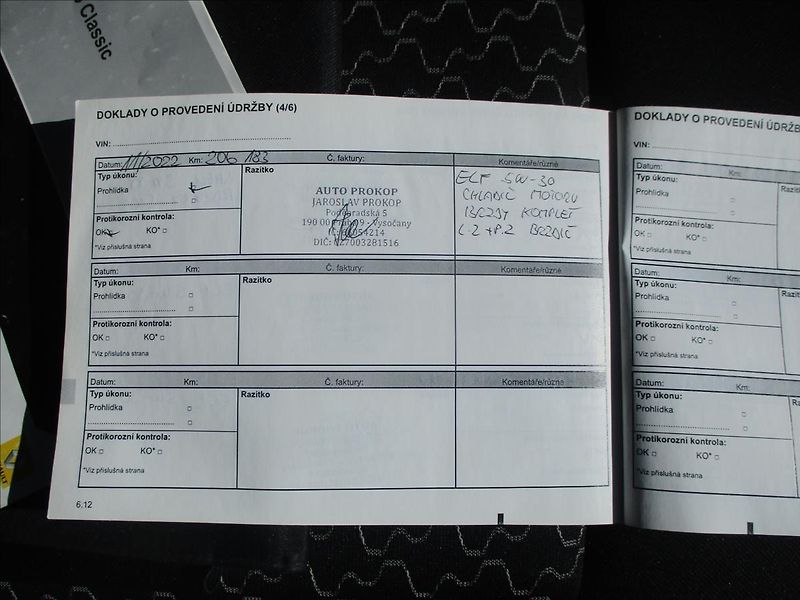 Classic
DOKLADY O PROVEDENÍ ÚDRŽBY (4/6)
VIN:
Datum: 11/2022 Km: 206 183 Č. faktury: Komentáře/různé
Typ úkonu: Razítko
Prohlídka
Protikorozní kontrola:
OK KO*
*Viz příslušná strana
AUTO PROKOP
JAROSLAV PROKOP
Podhradská 5
190 00 Praha 9 - Vysočany
DIČ: CZ7003281516
ELF 5W-30
CHLADIČ MOTORU
BRZDY KOMPLET
L-Z + P.Z BRZDIČ
Datum: Km: Č. faktury: Komentáře/různé
Typ úkonu: Razítko
Prohlídka
Protikorozní kontrola:
OK KO*
*Viz příslušná strana
Datum: Km: Č. faktury: Komentáře/různé
Typ úkonu: Razítko
Prohlídka
Protikorozní kontrola:
OK KO*
*Viz příslušná strana
6.12
DOKLADY O PROVEDENÍ ÚDRŽB
VIN:
Datum: Km:
Typ úkonu:
Prohlídka
Protikorozní kontrola:
OK KO*
*Viz příslušná strana
Datum: Km:
Typ úkonu:
Prohlídka
Protikorozní kontrola:
OK KO*
*Viz příslušná strana
Datum: Km:
Typ úkonu:
Prohlídka
Protikorozní kontrola:
OK KO*
*Viz příslušná strana